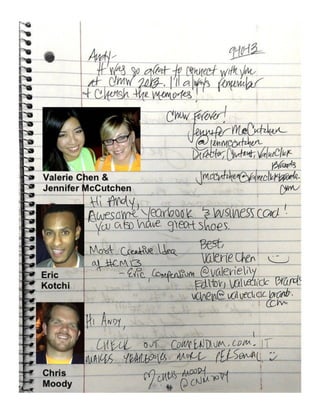 9/10/13
Andy-
It was so great to connect with you
at CMW 2013. I'll always remember
+ cherish the memories!
CMW Forever!
Jennifer McCutchen
@jenmccutchen
Director, Content, ValueClick
Brands
jmccutchen@valueclickbrands.
com
Valerie Chen &
Jennifer McCutchen
Hi Andy,
Awesome yearbook & business card!
You also have great shoes.
Most Creative Idea
at #CMI13
- Eric, Compendium
Best,
Valerie Chen
@valerieliiy
Editor, Valueclick Brands
vchen@valueclickbrands.
com
Eric
Kotchi
Hi Andy,
CHECK OUT COMPENDIUM.COM! IT
MAKES YEARBOOKS MORE PERSONAL
CHRIS MOODY
@CNMOODY
Chris
Moody